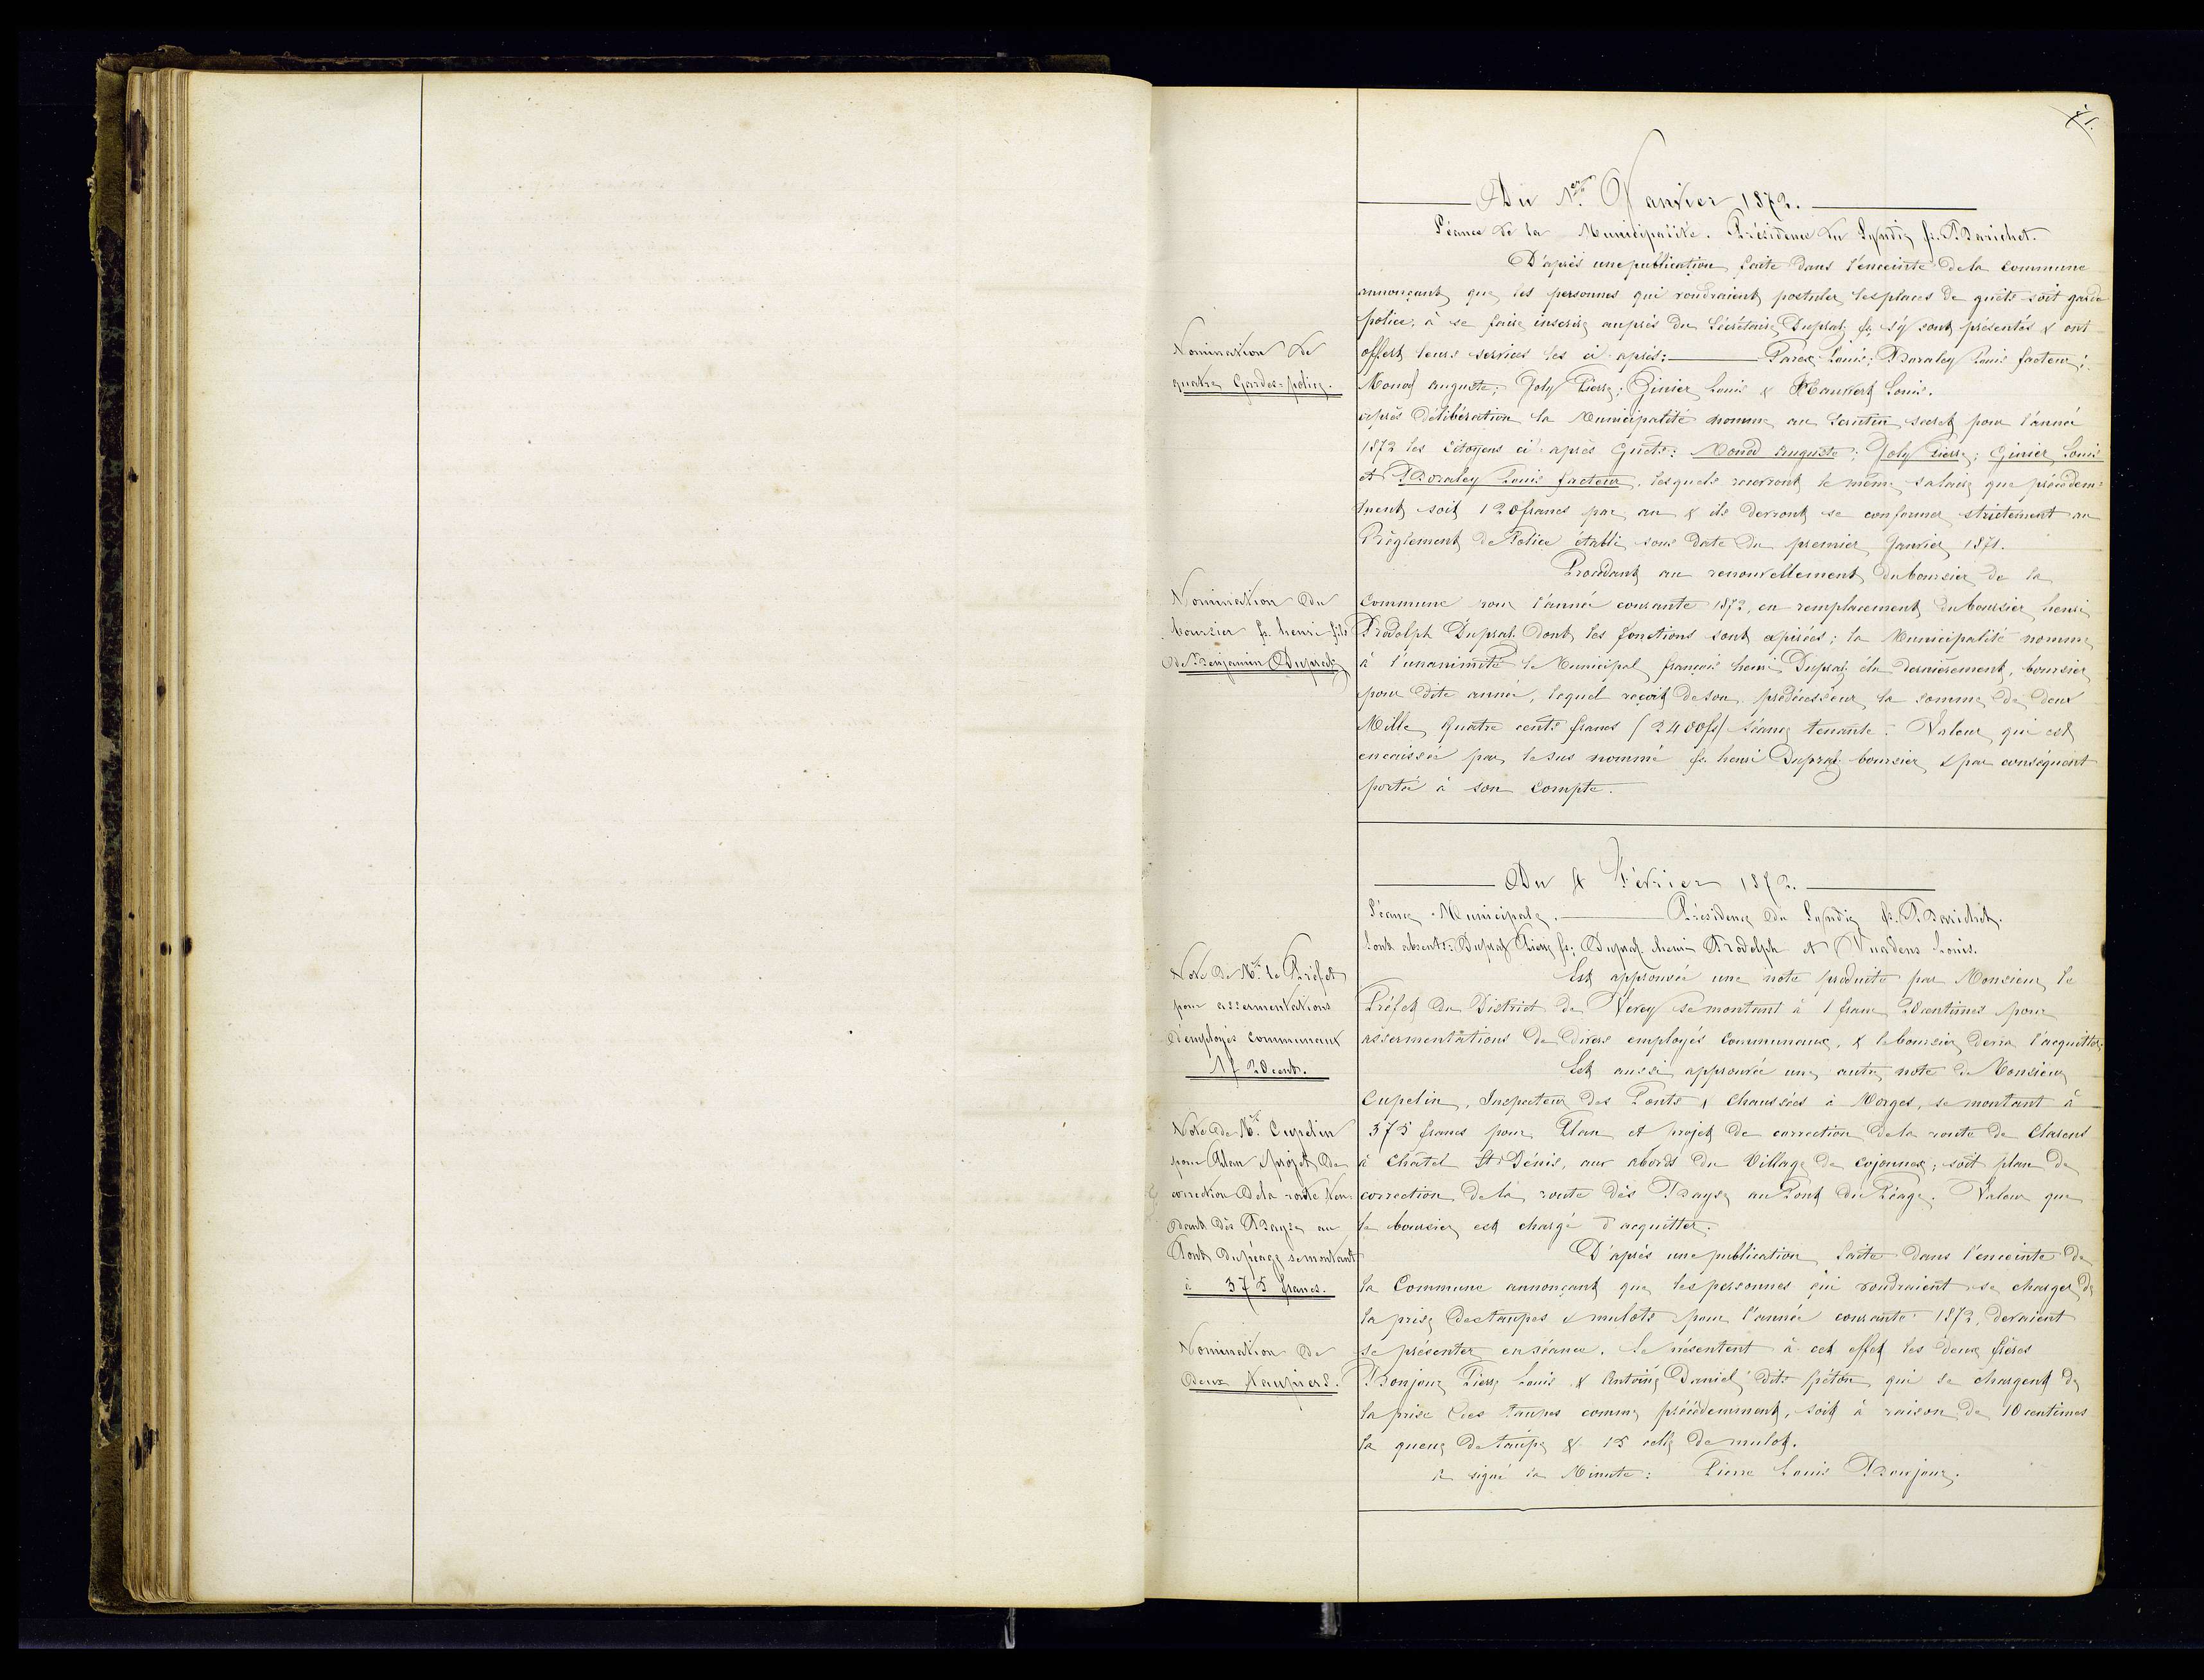 Du 1er Janvier 1872.
Séance de la Municipalité. Présidence du Syndic fs. Barichet.
D'après une publication faite dans l'enceinte de la commune
annonçant que les personnes qui voudraient postuler les places de guets soit garde
police, à se faire inscrire auprès du Sécrétaire Dupraz fs, s'y sont présentés & ont
Nomination de
quatre Gardes-police.
offert leurs services les ci-après: Louis; Boraley Louis facteur;
Monod Auguste; Joly Pierre; Ginier Louis & Louis.
après délibération la Municipalité nomme au Scrutin secret pour l'année
1872 les Citoyens ci-après Guets: Monod Auguste; Joly Pierre; Ginier Louis
et Boraley Louis facteur, lesquels recevront le même salaire que précédem=
ment soit 120 francs par an & ils devront se conformer strictement au
Règlement de Police établi sous date du premier Janvier 1871.
Procédant au renouvellement du boursier de la
Nomination du
boursier fs. henri fils
de Benjamin Dupraz
Commune pour l'année courante 1872, en remplacement du boursier henri
Rodolph Dupraz dont les fonctions sont expirées; la Municipalité nomme
à l'unanimité le Municipal françois henri Dupraz élu dernièrement, boursier
pour dite année, lequel reçoit de son prédécesseur la somme de deux
Mille quatre cents francs (2400 fs) séance tenante. Valeur qui est
encaissée par le sus nommé fs. henri Dupraz boursier & par conséquent
portée à son compte.
Du 4 Février 1872.
Séance Municipale. Présidence du Syndic fs. Barichet.
Sont absents: Dupraz Pierre fs, Dupraz henri Rodolph et Vuadens Louis.
Note de Mr. le Préfet
pour assermentations
d'employés communaux
1 f 20 cent.
Est approuvée une note produite par Monsieur le
Préfet du District de Vevey se montant à 1 franc 20 centimes pour
assermentations de divers employés Communaux, & le boursier devra l'acquitter.
Est aussi approuvée une autre note de Monsieur
Note de Mr. Cupelin
pour Plan & projet de
correction de la route ten=
dant dès Bayse au
Pont du péage se montant
à 375 francs.
Cupelin, Inspecteur des Ponts & Chaussées à Morges, se montant à
375 francs pour Plan et projet de correction de la route de Clarens
à Châtel St Dénis, aux abords du Village de Cojonnex; soit plan de
correction de la route dès Bayse au Pont du Péage. Valeur que
le boursier est chargé d'acquitter.
D'après une publication faite dans l'enceinte de
la Commune annonçant que les personnes qui voudraient se charger de
la prise des taupes & mulots pour l'année courante 1872, devaient
Nomination de
deux Taupiers.
se présenter en séance. Se présentent à cet effet les deux frères
Bonjour Pierre Louis & Antoine Daniel dits piéton qui se chargent de
la prise des taupes comme précédemment, soit à raison de 10 centimes
la queue de taupe & 15 celle de mulot.
a signé la Minute: Pierre Louis Bonjour.